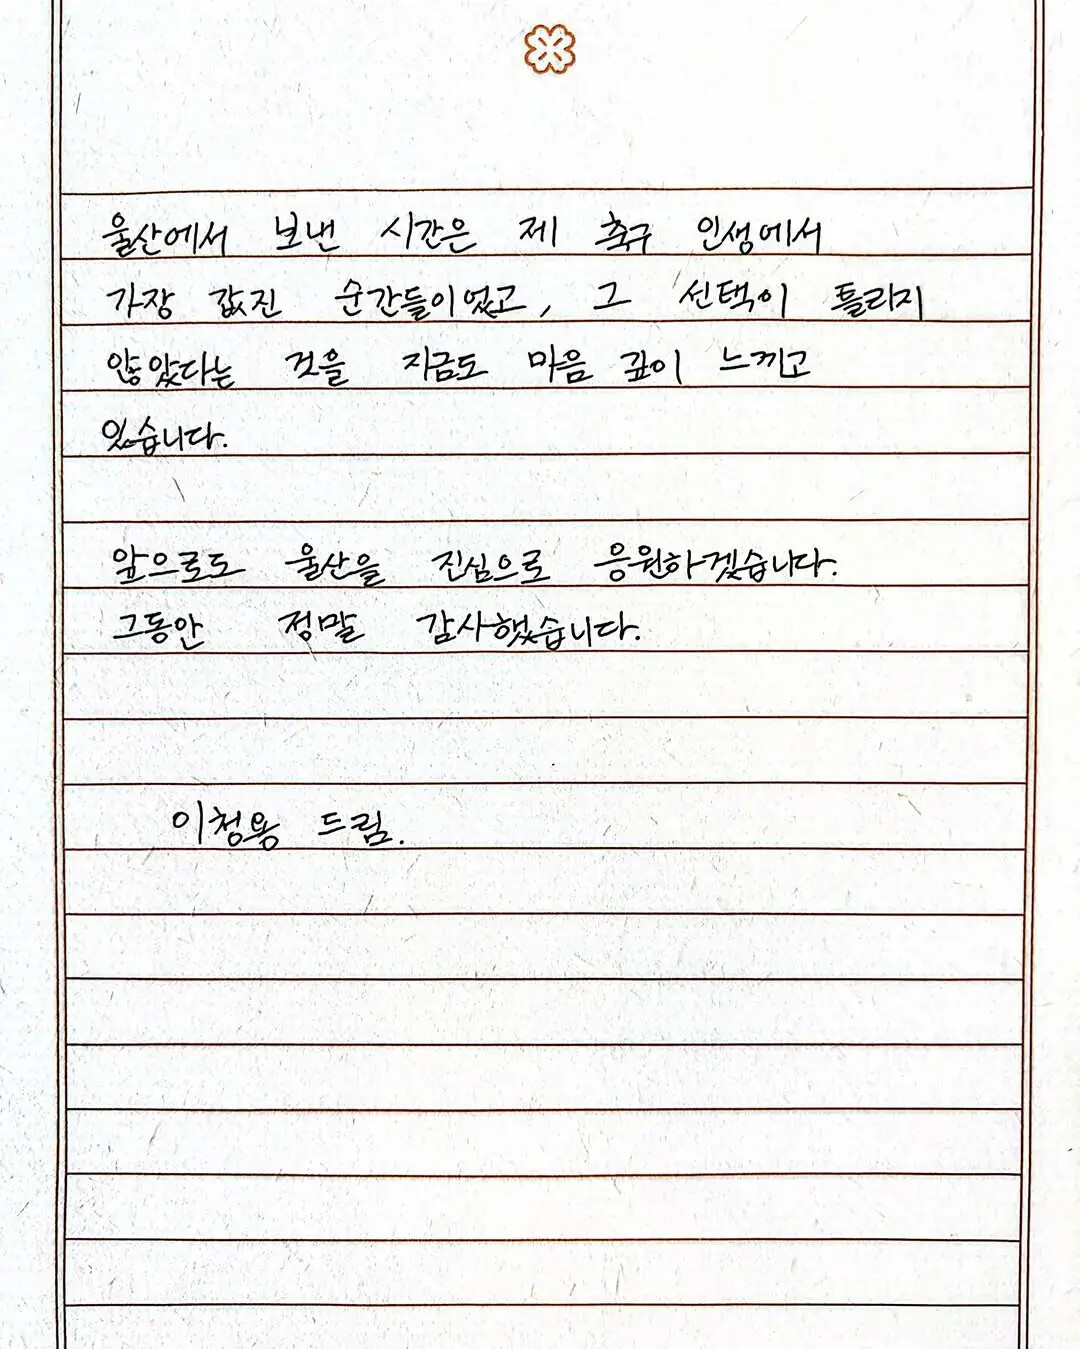 울산에서 보낸 시간은 제 축구 인생에서
가장 값진 순간들이었고, 그 선택이 틀리지
않았다는 것을 지금도 마음 깊이 느끼고
있습니다.
앞으로도 울산을 진심으로 응원하겠습니다.
그동안 정말 감사했습니다.
이청용 드림.